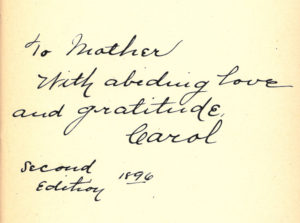 To Mother
With abiding love
and gratitude,
Carol
Second
Edition 1896